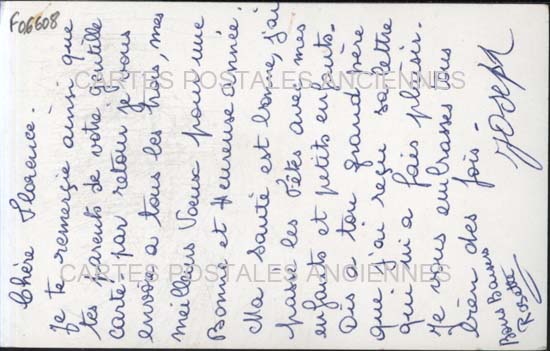 F06608
Chère Florence.
Je te remerçie ainsi que
tes parents de votre gentille
carte par retour je vous
envoie a tous les trois, mes
meilleurs Vœux pour une
Bonne et Heureuse année!
Ma santé est bonne, j'ai
passé les Fêtes avec mes
enfants et petits enfants.
Dis a ton grand père
que j'ai reçu sa lettre
qui m'a fais plaisir.
Je vous embrasses tous
bien des fois.
Joseph
Bons Baisers
Rosette
CARTES POSTALES ANCIENNES
CARTES POSTALES ANCIENNES